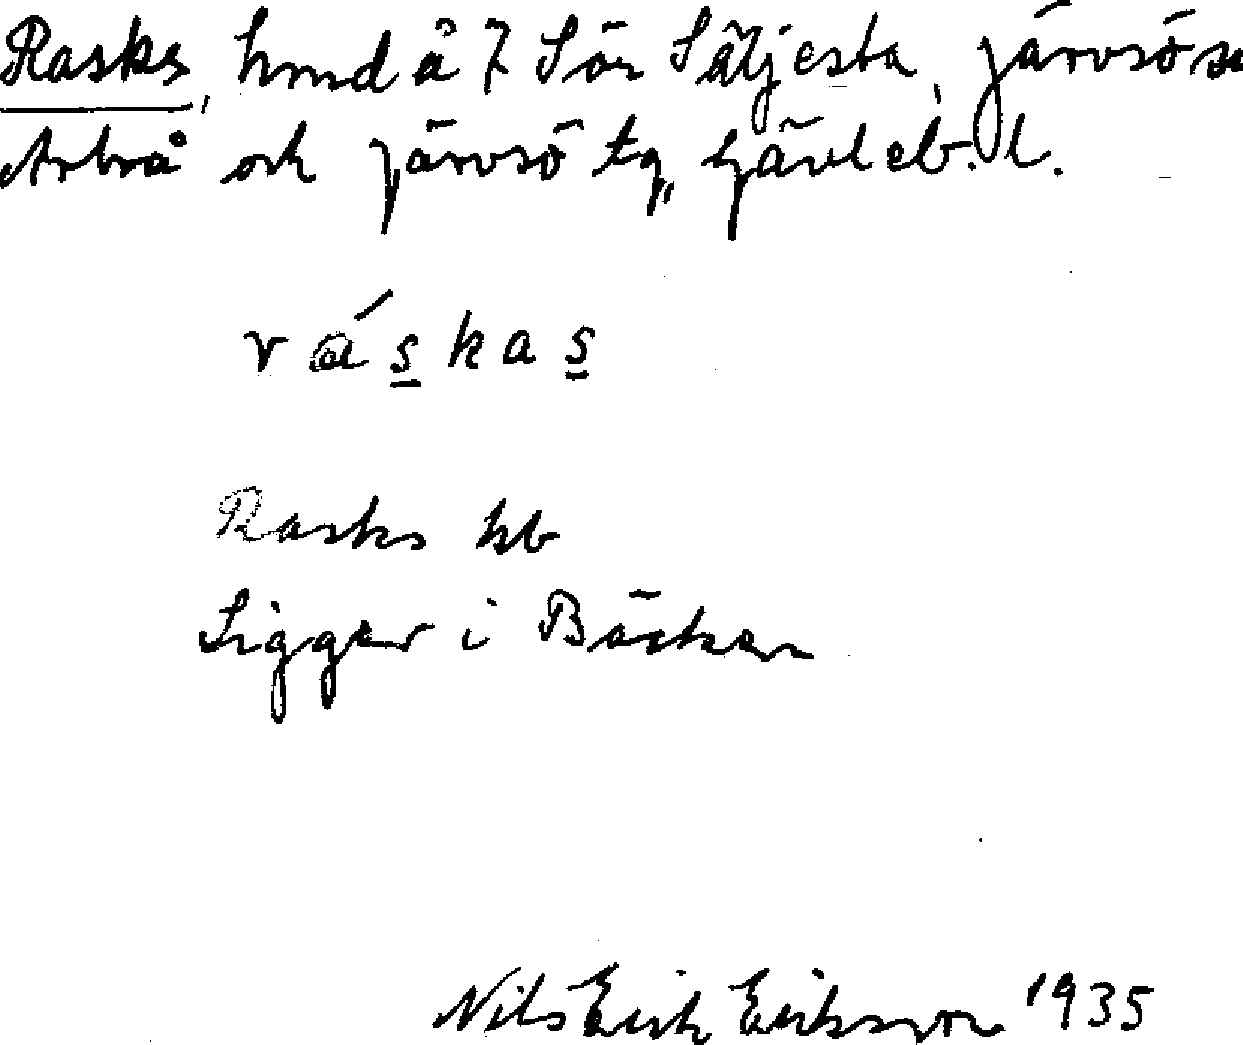 Rasks, hmd å 7 Sör Säljesta, Järvsö sn
Arbrå och Järvsö tg, Gävleb. l.
ráskas
Rasks hb
Ligger i Bäcken
Nils Erik Eriksson 1935